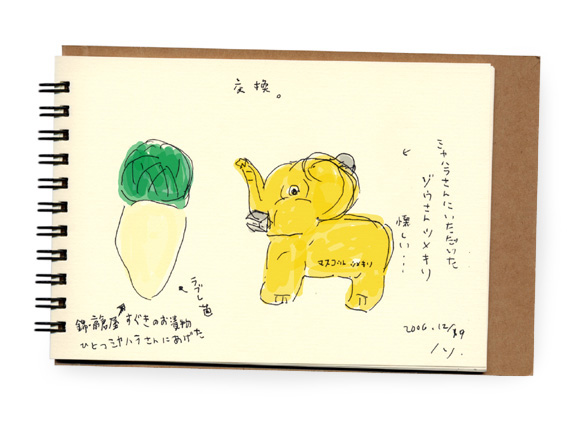 交換。
ミヤハラさんにいただいた
ゾウさんツメキリ
懐しい・・・
マスコット ツメキリ
ラブレ菌
錦・ 屋 すぐきのお漬物
ひとつミヤハラさんにあげた
2006.12/